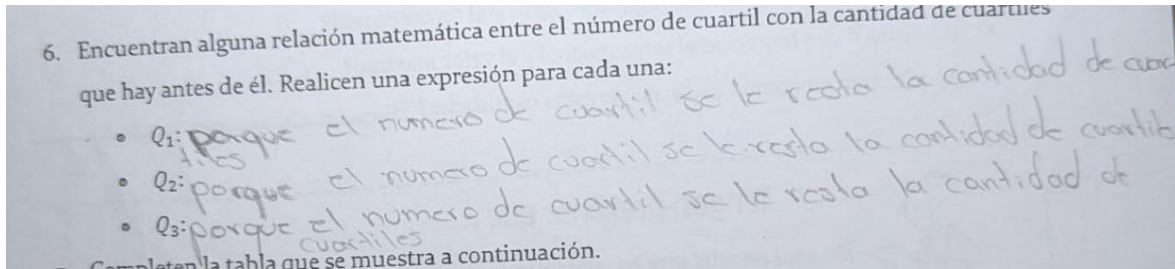 6. Encuentran alguna relación matemática entre el número de cuartil con la cantidad de cuartiles
que hay antes de él. Realicen una expresión para cada una:
• Q1: porque el numero de cuartil se le resta la cantidad de cuar
tiles
• Q2: porque el numero de cuartil se le resta la cantidad de cuartile
• Q3: porque el numero de cuartil se le resta la cantidad de
cuartiles
Completen la tabla que se muestra a continuación.